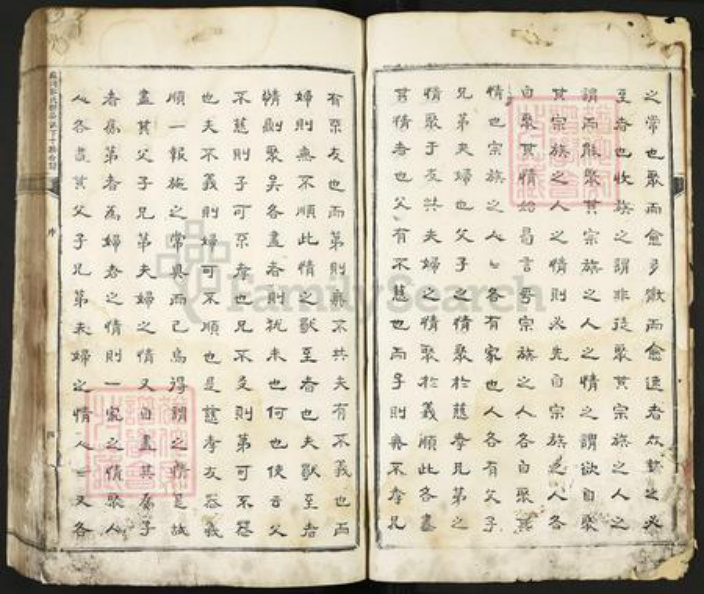 之常也聚而愈多散而愈速者众執之必
至者也收族之謂非徒聚其宗族之人之
謂而能聚其宗族之人之情之謂欲自聚
其宗族之人之情則必先自宗族之人各
自聚其情始曷言乎宗族之人各自聚其
情也宗族之人人各有家也人各有父子
兄弟夫婦也父子之情聚於慈孝兄弟之
情聚于友共夫婦之情聚於義順此各盡
其情者也父有不慈也而子則無不孝兄
有不友也而弟則無不共夫有不義也而
婦則無不順此情之獸至者也夫獸至者
情則聚矣各盡者則犹未也何也使言父
不慈則子可不孝也兄不友則弟可不恭
也夫不義則婦可不順也是慈孝友恭義
順一報施之常典而已烏得謂之情是故
盡其父子兄弟夫婦之情又自盡其爲子
者爲弟者爲婦者之情則一家之情聚人
人各盡其父子兄弟夫婦之情人人又各
序
四
FamilySearch